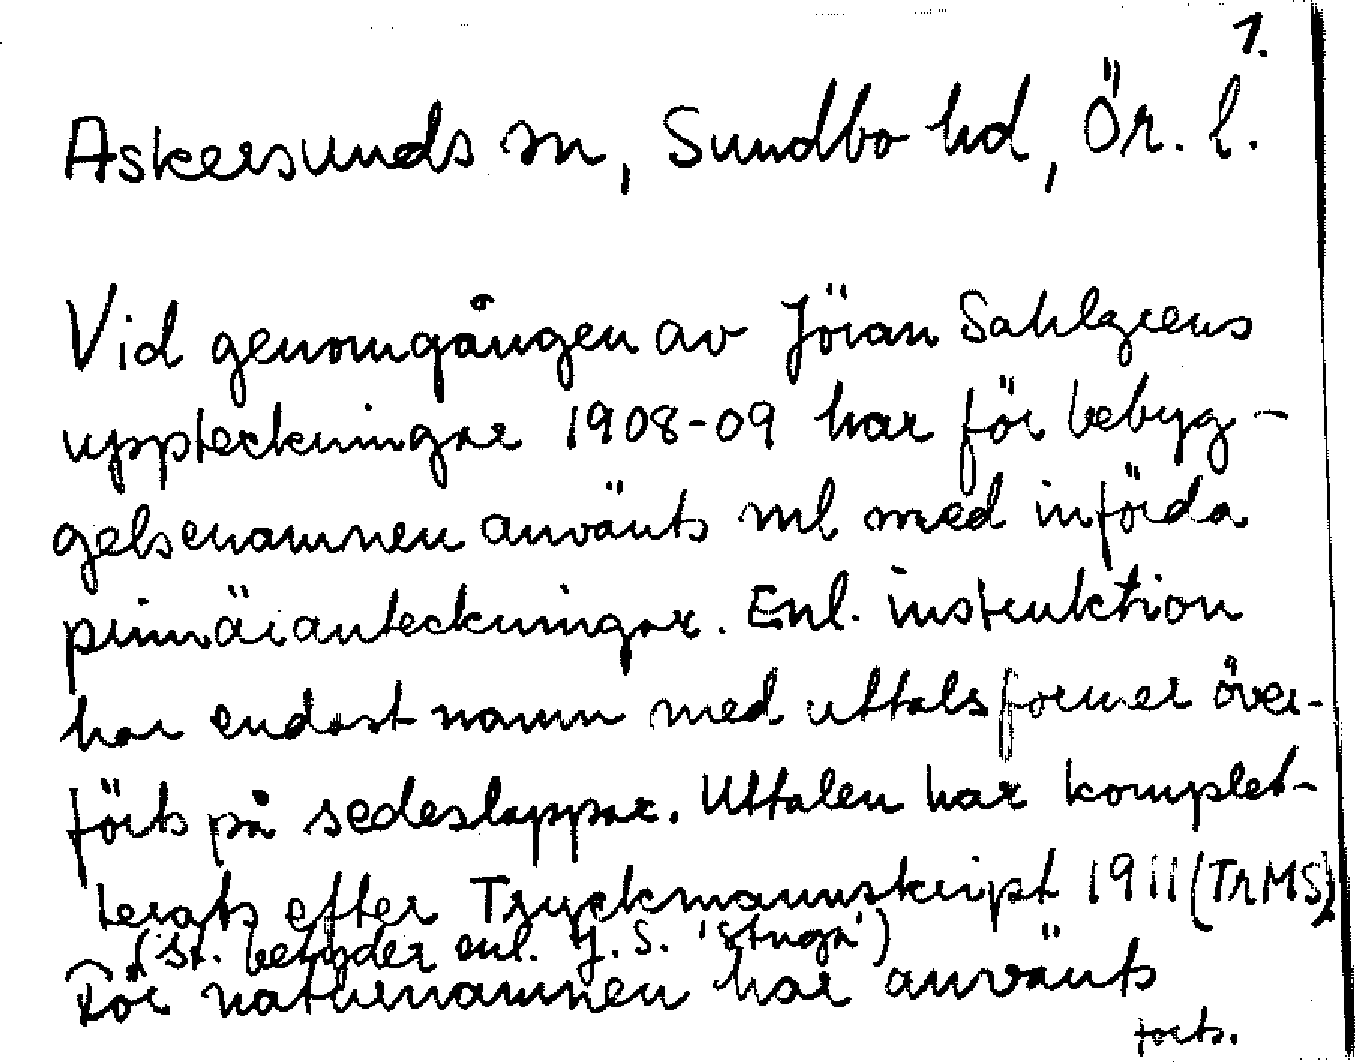 1.
Askersunds sn, Sundbo hd, Ör. l.
Vid genomgången av Jöran Sahlgrens
uppteckningar 1908-09 har för bebyg-
gelsenamnen använts ml med införda
primäranteckningar. Enl. instruktion
har endast namn med uttalsformer över-
förts på sedeslappar. Uttalen har komplet-
terats efter Tryckmanuskript 1911 (TrMS)
(St. betyder enl. J. S. 'stuga')
För naturnamnen har använts
forts.